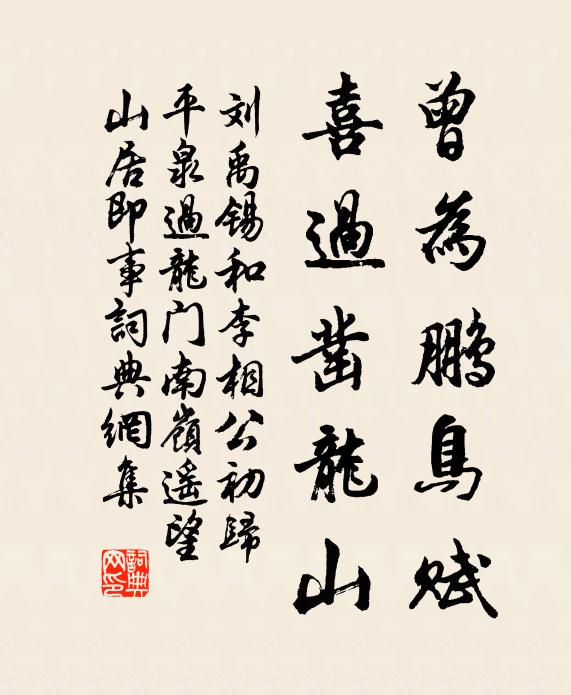 曾為鵬鳥賦
喜過凿龍山
刘禹锡和李相公初歸
平泉過龍门南嶺遥望
山居即事詞典網集
詞典网印